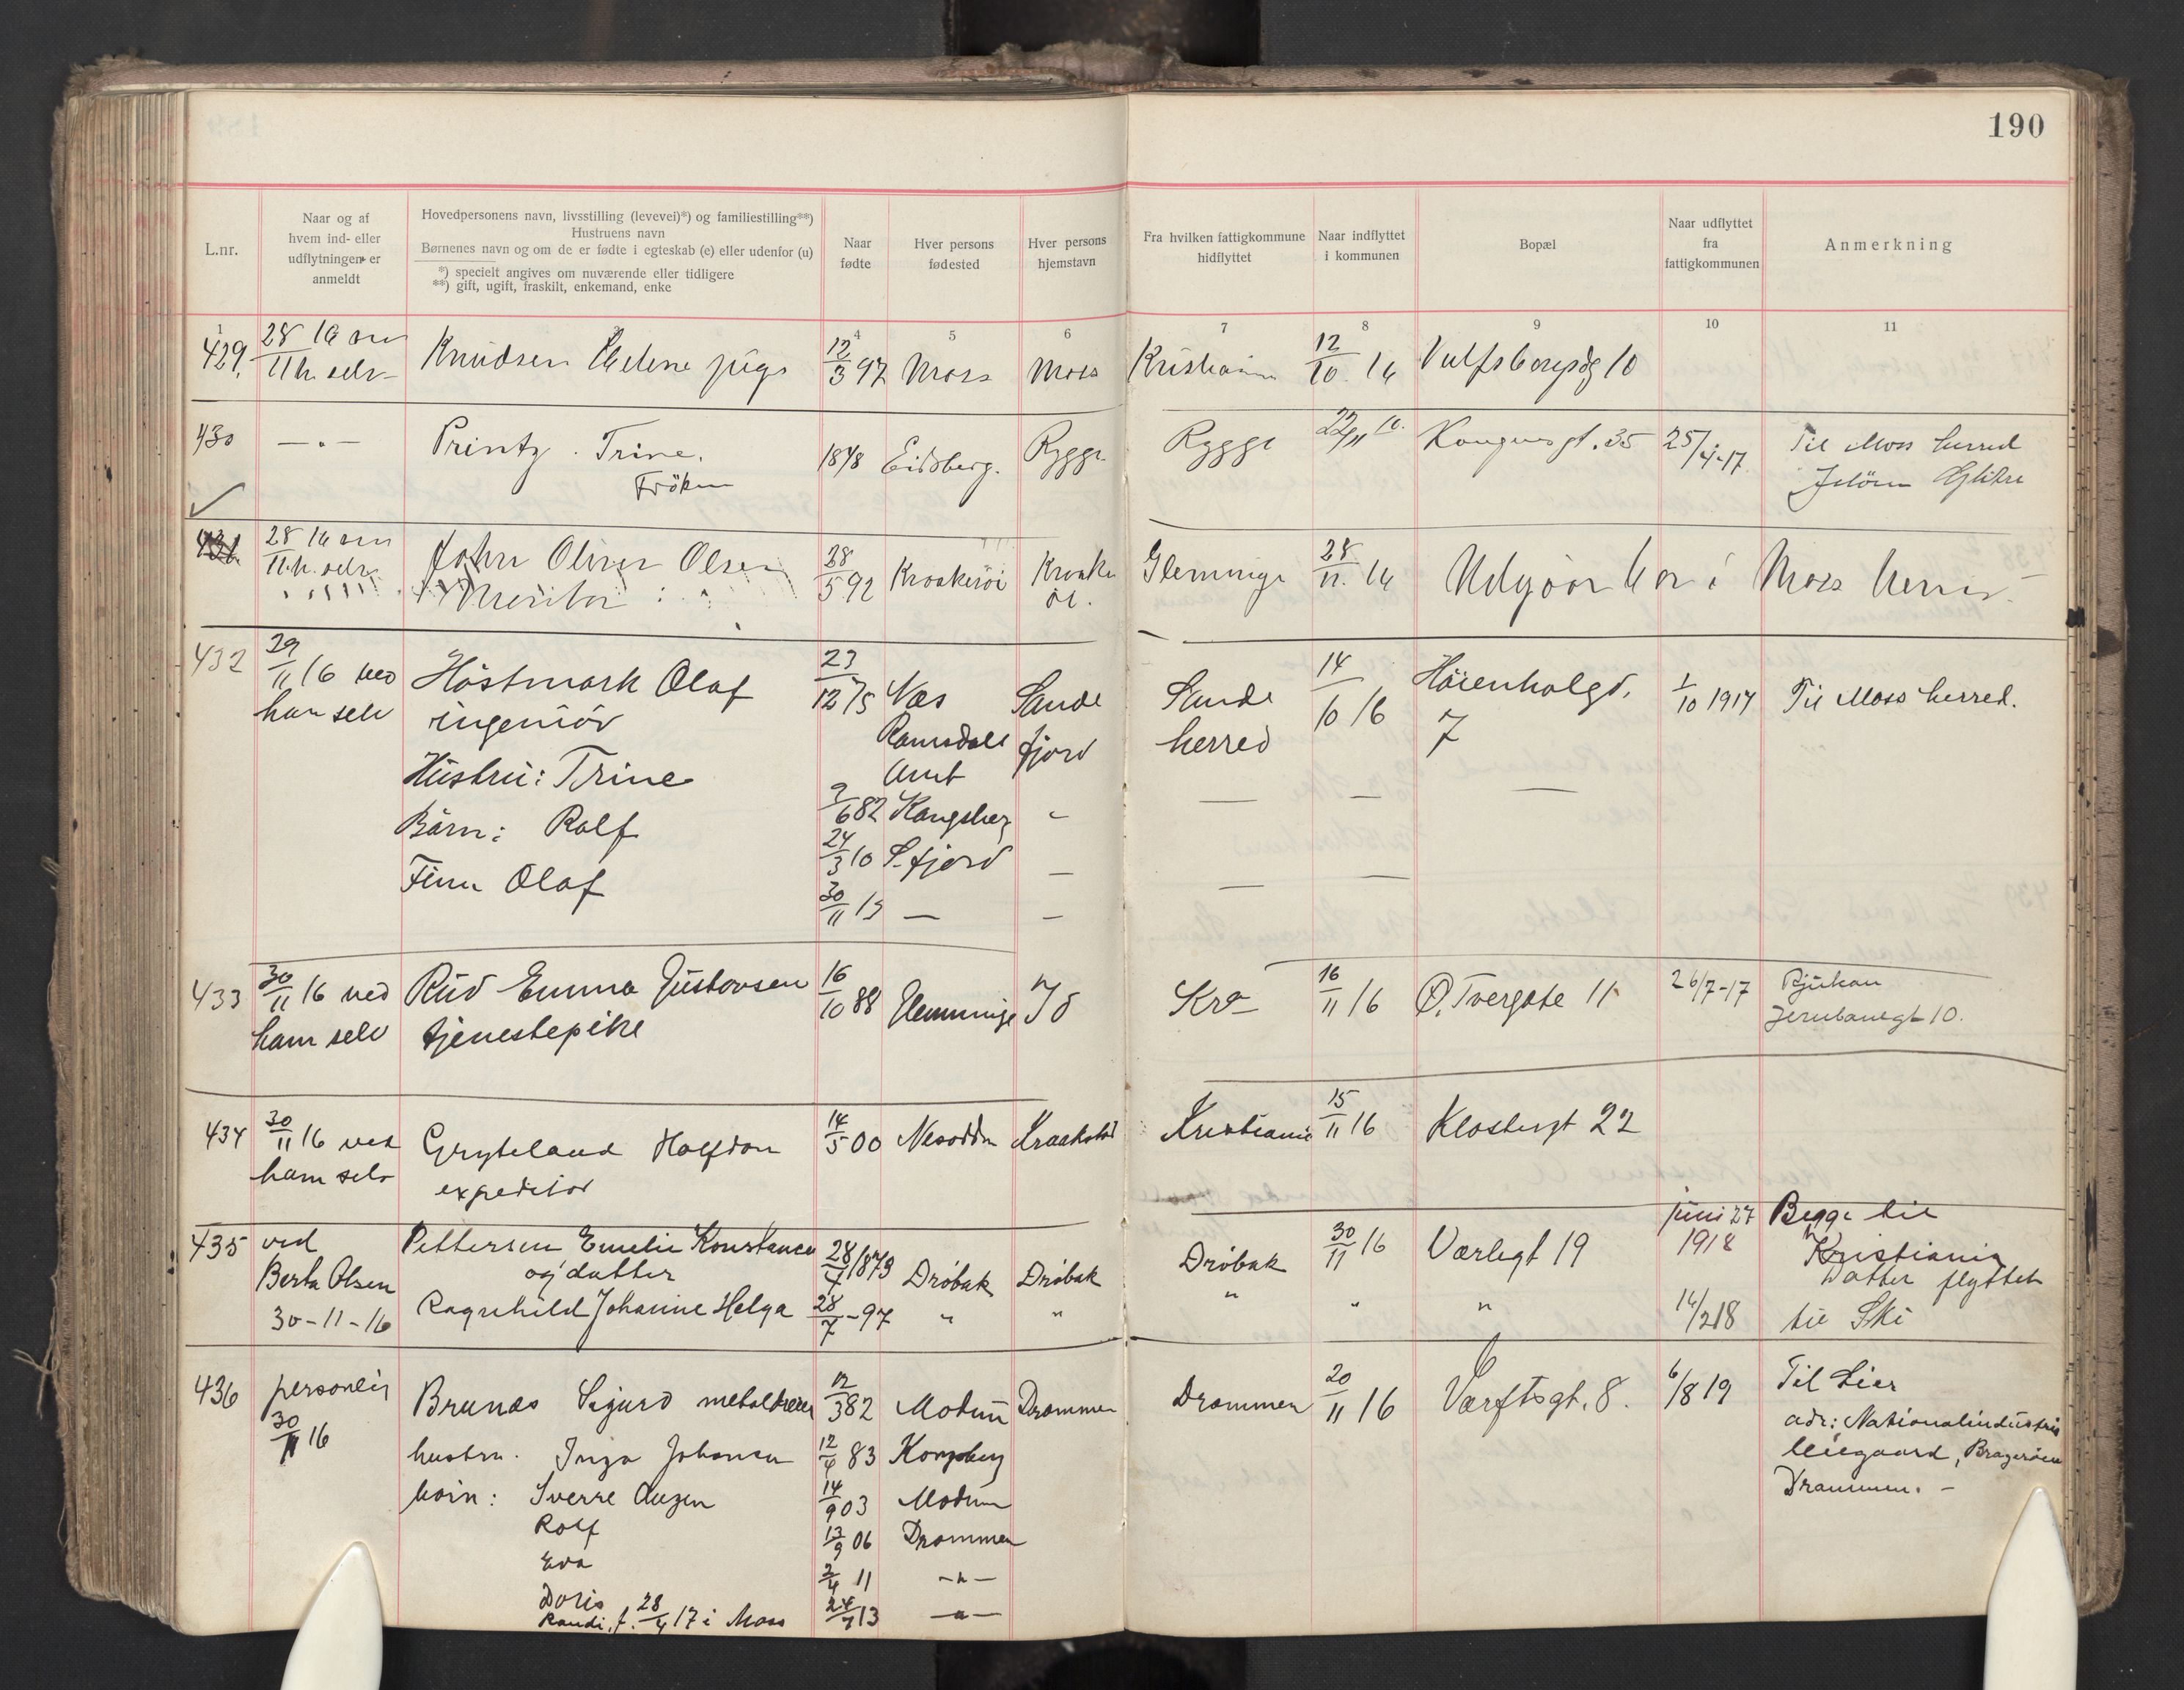 190
L.nr.
Naar og af
hvem ind- eller
udflytningen er
anmeldt
Hovedpersonens navn, livsstilling (levevei)*) og familiestilling**)
Hustruens navn
Børnenes navn og om de er fødte i egteskab (e) eller udenfor (u)
*) specielt angives om nuværende eller tidligere
**) gift, ugift, fraskilt, enkemand, enke
Naar
fødte
Hver persons
fødested
Hver persons
hjemstavn
Fra hvilken fattigkommune
hidflyttet
Naar indflyttet
i kommunen
Bopæl
Naar udflyttet
fra
fattigkommunen
Anmerkning
1 4 5 6 7 8 9 10 11
429. 28/11 16 Knudsen Helene 12/3 97 Moss Moss Kristiania 12/10 16 10
430 — " — Printz. Trine. 1848 Eidsberg. Rygge Rygge 22/11 16. Kongensgt. 35 25/4-17 Til Moss herred
Fröken Jelöen
431. 28/11 16 John Oliver Olsen 28/5 92 Kraakeröi Kraake Glemminge 28/11 16 i Moss herred
öi.
432 29/11 16 ved Höstmark Olaf 23/12 75 Næs Sande Sande 14/10 16 Höienholgt. 1/10 1917 Til Moss herred.
ham selv ingeniör Ramsdals fjord herred 7
Amt
Hustru: Trine 2/6 82 Kongsberg " — — —
Börn: Rolf 24/3 10 S.fjord — — —
Finn Olaf 30/11 15 — —
433 30/11 16 ved Rud Emma Gustavsen 16/10 88 Glemminge Id Kra 16/11 16 Ø. Tvergate 11 26/7-17 Rjukan
ham selv tjenestepike Jernbanegt 10.
434 30/11 16 ved Gryteland Halfdan 14/5 00 Nesodden Kraakstad Kristiania 15/11 16 Klostergt 22
ham selv expeditör
435 ved Pettersen Emelie Konstance 28/4 1873 Dröbak Dröbak Dröbak 30/11 16 Værlegt 19 juni 27 1918 Begge til
Berta Olsen og datter Kristiania
Datter flyttet
30-11-16 Ragnhild Johanne Helga 28/7-97 " " " " " 14/2 18 til Ski
436 personlig Brunæs Sigurd metaldreier 12/3 82 Modum Drammen Drammen 20/11 16 Værftsgt. 8. 6/8 19 Til Lier
30/11 16 adr: Nationalindustri
hustru. Inga Johanna 12/4 83 Kongsberg leiegaard, Bragerøen
börn: Sverre Augen 14/9 03 Modum Drammen. —
Rolf 13/9 06 Drammen
Eva 2/4 11 — " —
Doris 24/7 13 — " —
Randi, f. 28/4 17 i Moss